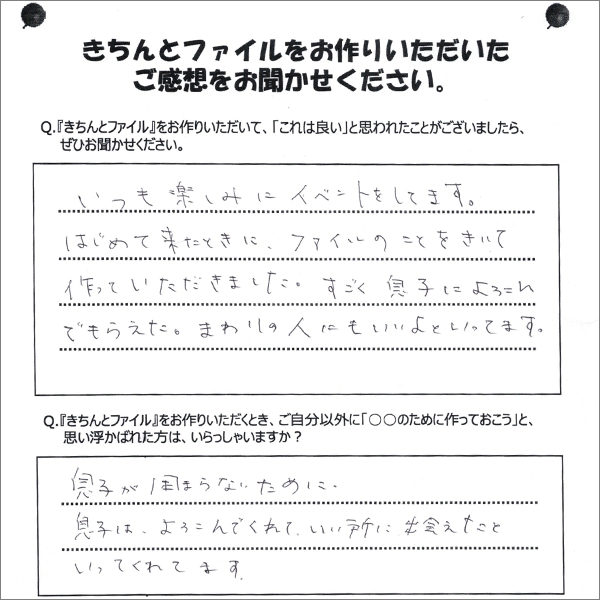 きちんとファイルをお作りいただいた
ご感想をお聞かせください。
Q.『きちんとファイル』をお作りいただいて、「これは良い」と思われたことがございましたら、
ぜひお聞かせください。
いつも楽しみにイベントをしてます。
はじめて来たときに、ファイルのことをきいて
作っていただきました。すごく息子によろこん
でもらえた。まわりの人にもいいよといってます。
Q.『きちんとファイル』をお作りいただくとき、ご自分以外に「○○のために作っておこう」と、
思い浮かばれた方は、いらっしゃいますか？
息子が困まらないために。
息子は、よろこんでくれて、いい所に出会えたこと
いってくれてます